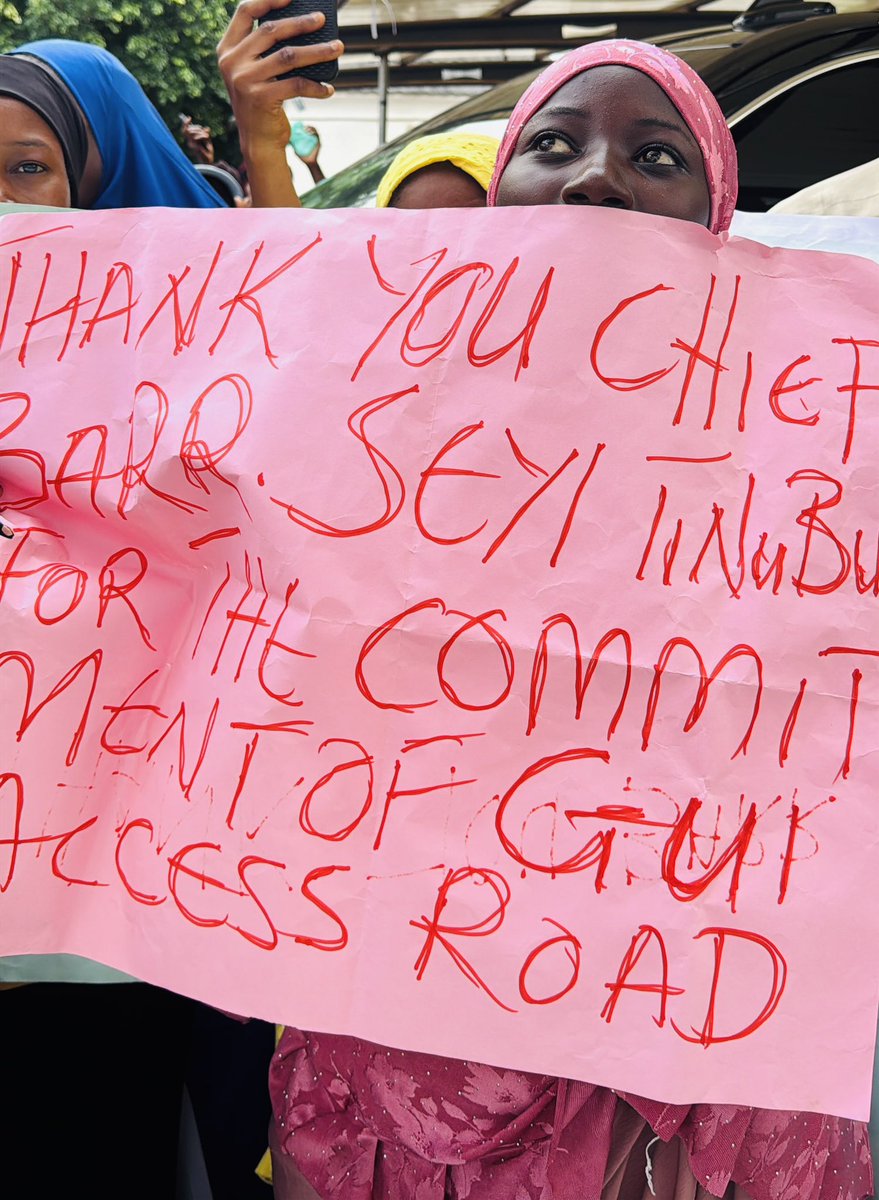 THANK YOU CHIEF
BARR. SEYI TINUBU
FOR THE COMMIT
MENT OF GUI
ACCESS ROAD